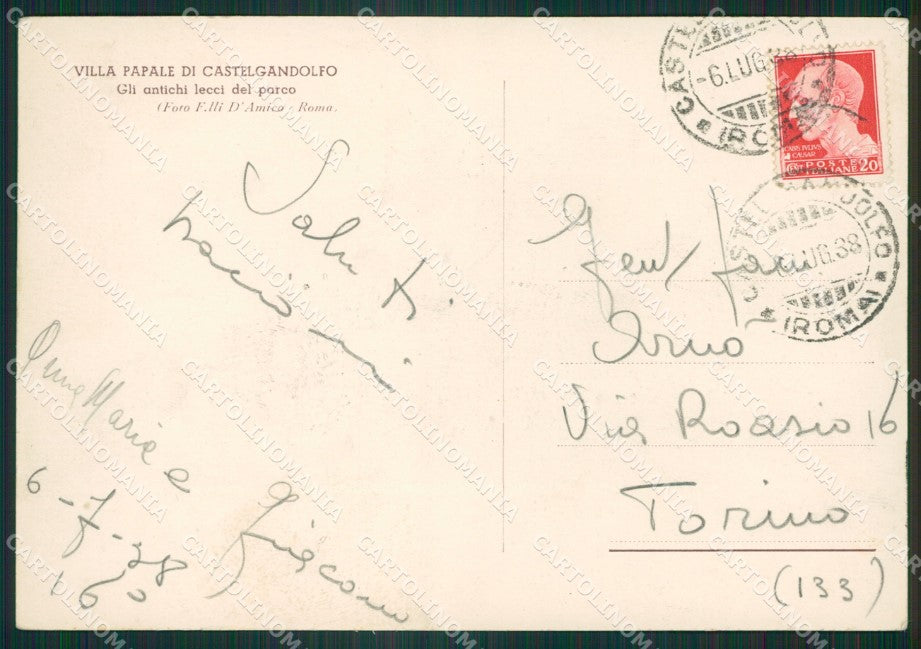 VILLA PAPALE DI CASTELGANDOLFO
Gli antichi lecci del parco
(Foto F.lli D'Amico - Roma.
Saluti
bacioni
Anna Maria e
Giacomo
6-7-38
CASTEL GANDOLFO
-6.LUG.38
(ROMA)
CAIVS IVLIVS
CAESAR
POSTE
ITALIANE
CENT 20
CASTEL GANDOLFO
LUG.38
(ROMA)
Gent/ fam
Via Rosario 16
Torino
(133)
CARTOLINOMANIA